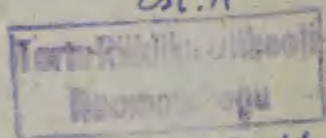 Est. A
Tartu Riikliku Ülikooli
Raamatukogu